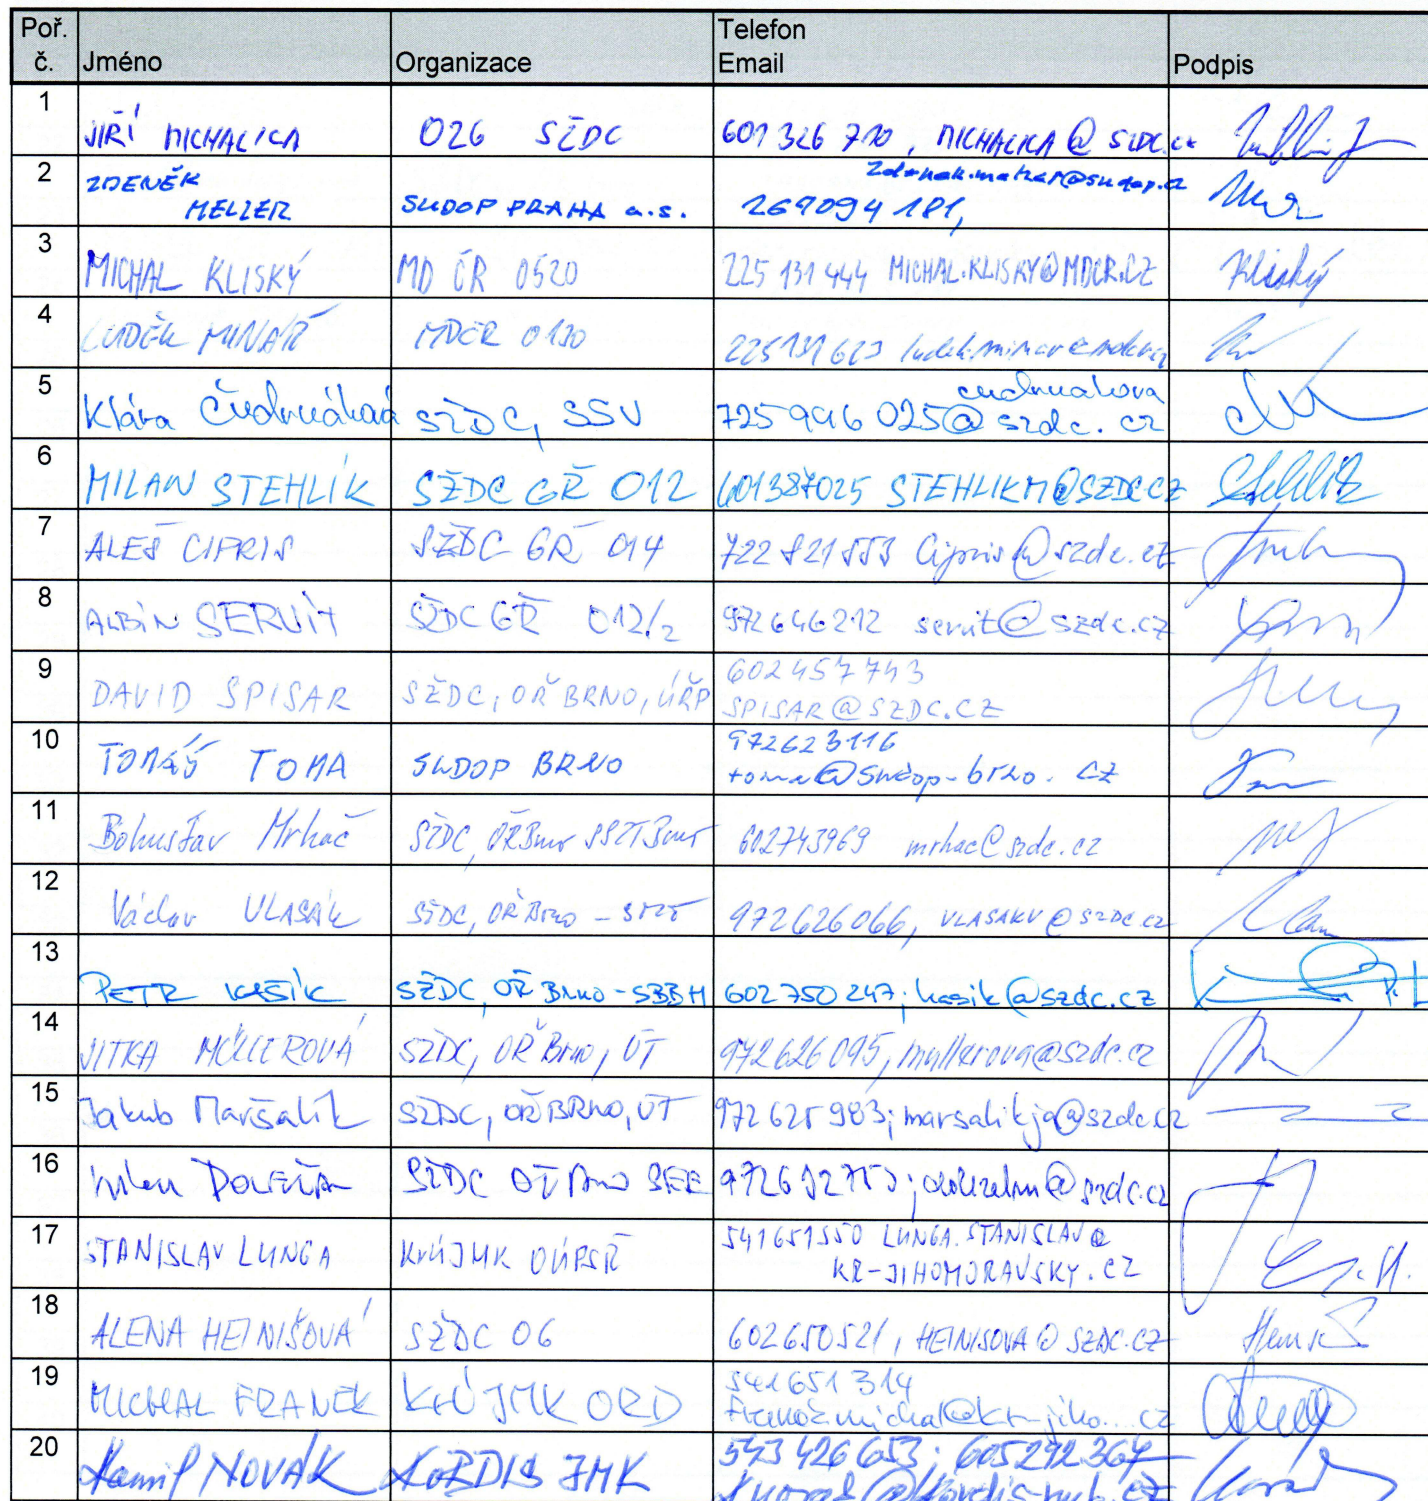 Poř. č. Jméno Organizace Telefon Email Podpis
1 JIŘÍ MICHALICA 026 SŽDC 601 326 710, MICHALICA@SZDC.CZ
2 ZDENĚK MELZER SUDOP PRAHA a.s. 267094 181,
3 MICHAL KLISKÝ MD ČR 0520 225 131 444 MICHAL.KLISKY@MDCR.CZ Kliský
4 LUDĚK MINAŘ MDČR 0130 225131623
5 Klára SŽDC, SSV 725 996 025 @szdc.cz
6 MILAN STEHLÍK SŽDC GŘ 012 601387025 STEHLIKM@SZDC.CZ
7 ALEŠ CIPRIS SŽDC GŘ 014 722 821 553 Cipris@szdc.cz
8 ALBÍN SERVÍT SŽDC GŘ 012/2 972646212 servit@szdc.cz
9 DAVID SPISAR SŽDC, OŘ BRNO, ÚŘP 602457743
SPISAR@SZDC.CZ
10 TOMÁŠ TOMA SUDOP BRNO 972623116
toma@sudop-brno.cz
11 Bohuslav Mrhač SŽDC, OŘ Brno SSZT Brno 602743969 mrhac@szdc.cz
12 Václav VLASÁK SŽDC, OŘ Brno - 972626066, VLASAKV@SZDC.CZ
13 PETR KASÍK SŽDC, OŘ Brno - SBBH 602 750 247; kasik@szdc.cz
14 JITKA MÜLLEROVÁ SŽDC, OŘ Brno, ÚT 972626095, mullerova@szdc.cz
15 Jakub Maršalík SŽDC, OŘ BRNO, ÚT 972 625 983; marsalikja@szdc.cz
16 Milan SŽDC OŘ Brno SEE @szdc.cz
17 STANISLAV LUNGA KrÚ JMK OÚPSŘ 541651550 LUNGA.STANISLAV@
KR-JIHOMORAVSKY.CZ
18 ALENA HEINIŠOVÁ SŽDC 06 602650521, HEINISOVA@SZDC.CZ
19 MICHAL FRANEK KrÚ JMK ORD 541651314
20 Kamil NOVÁK KORDIS JMK 543 426 653; 605292367